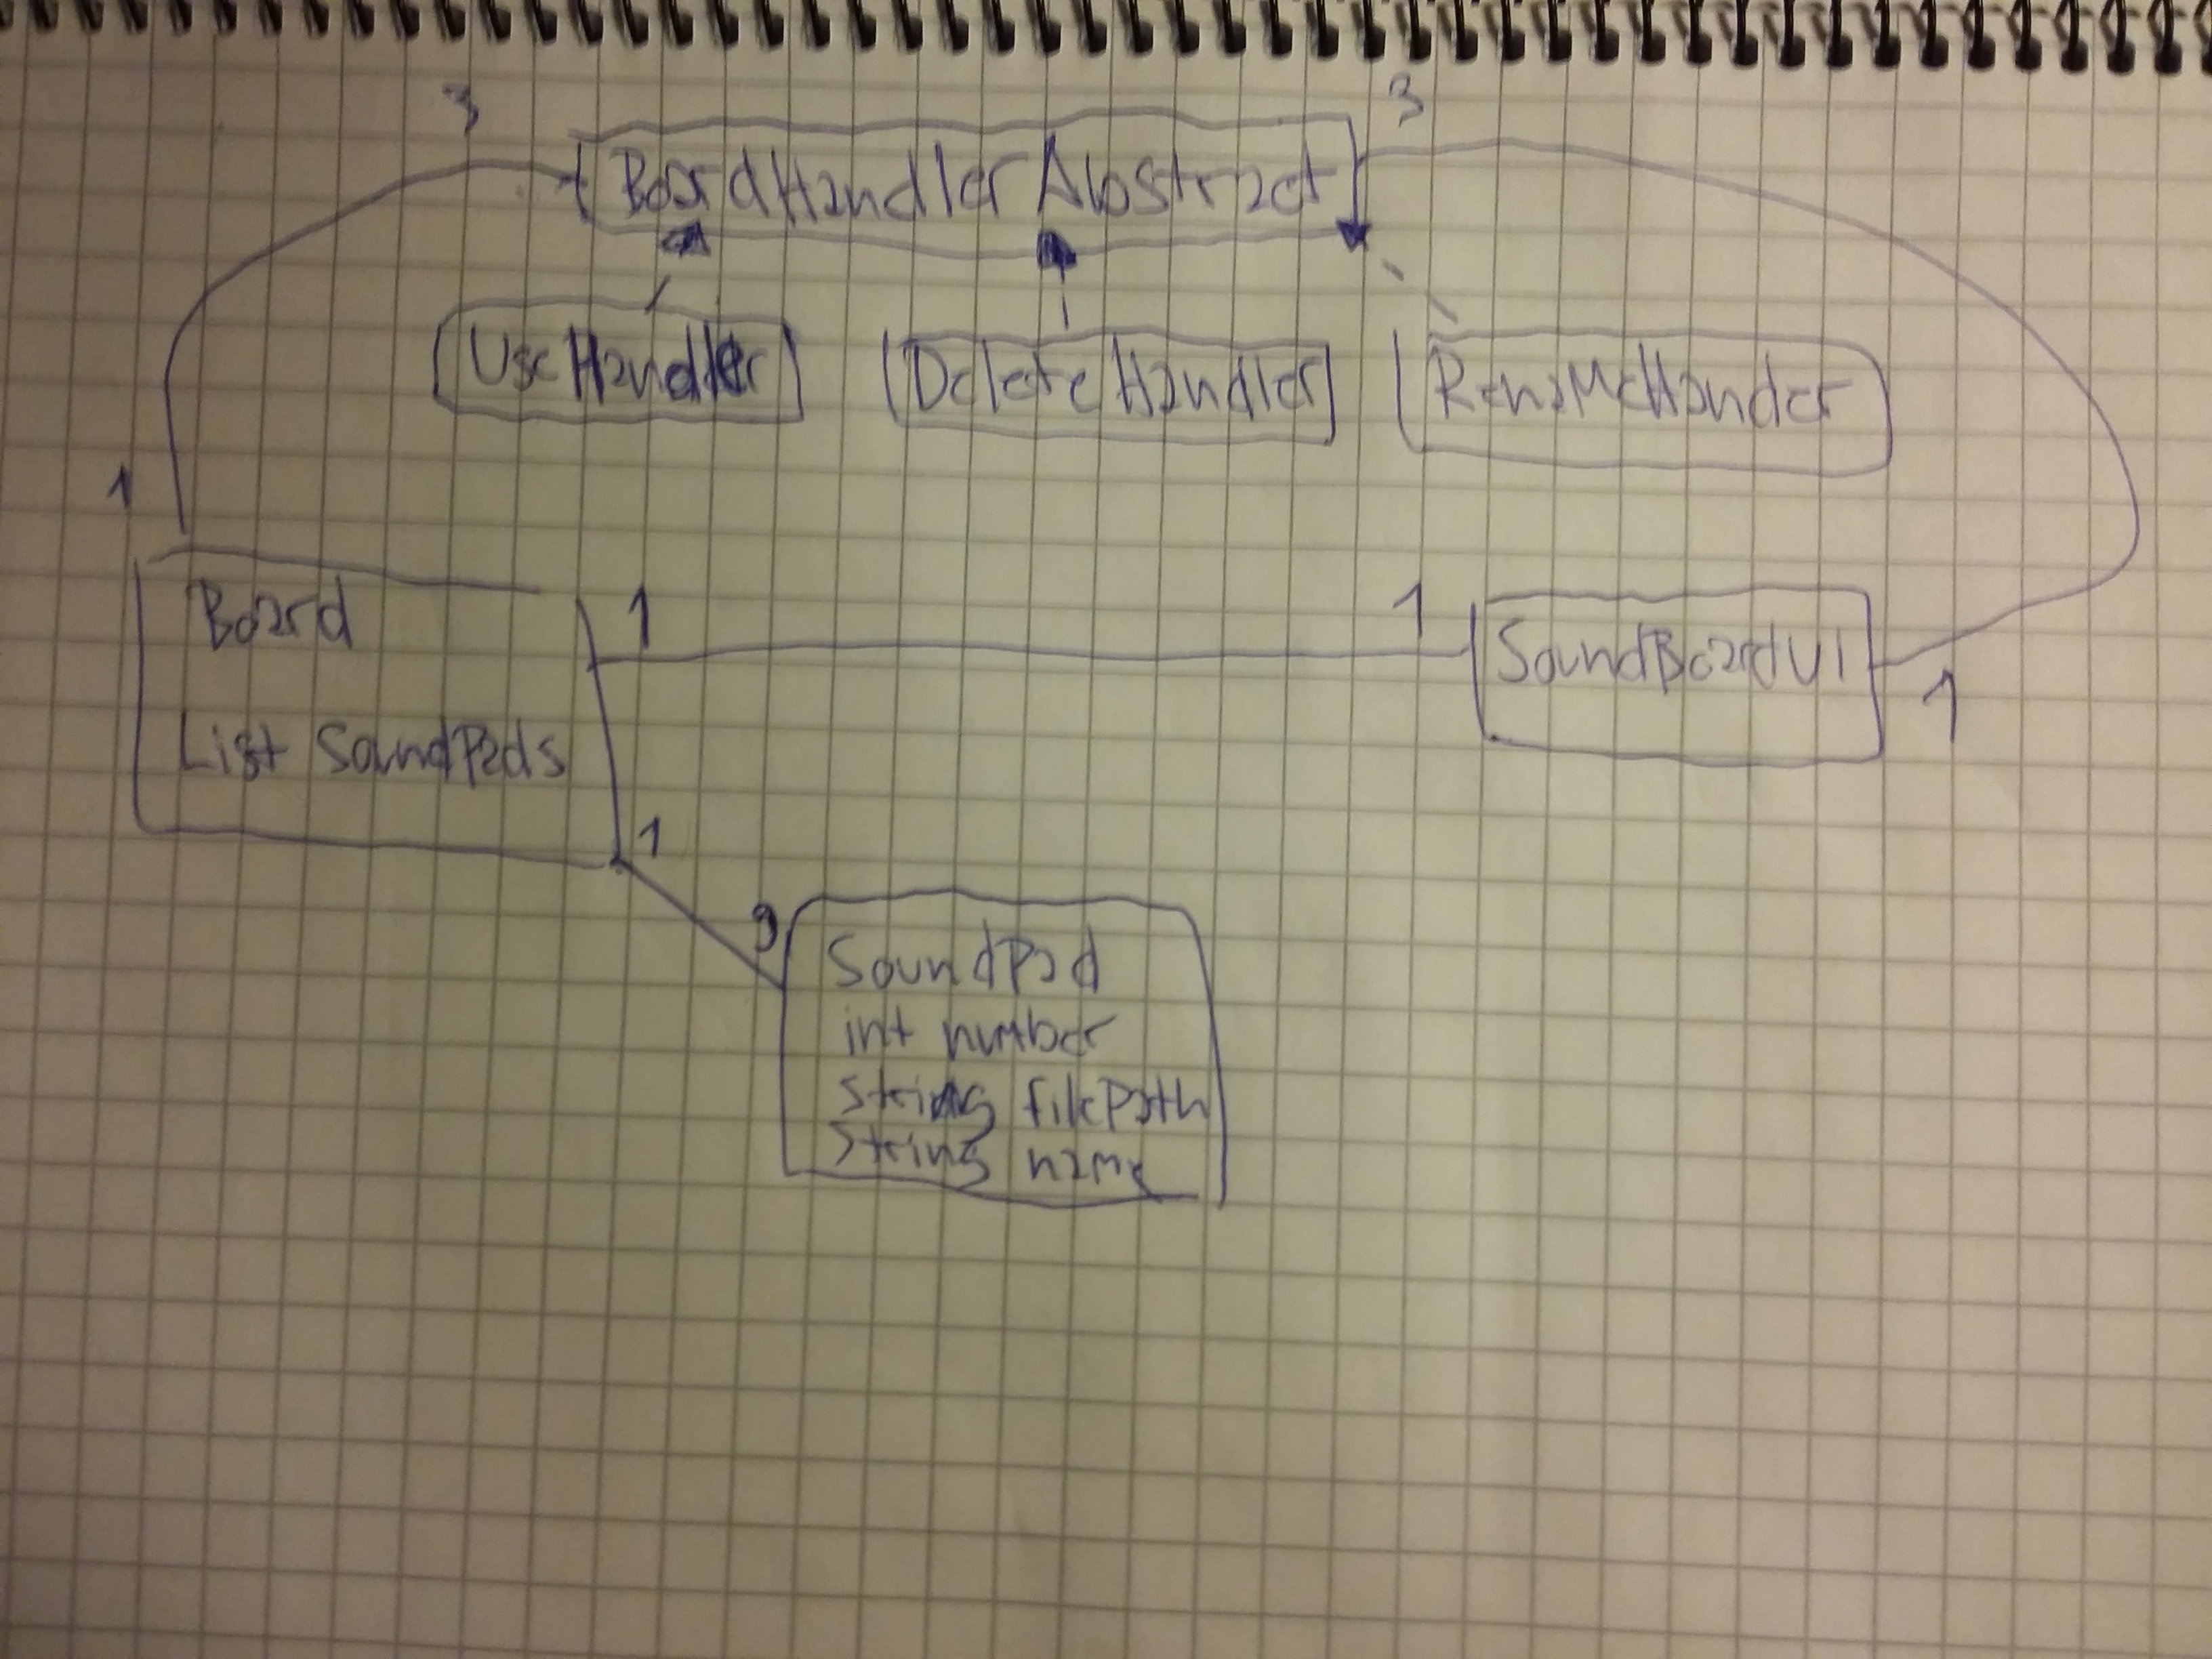 3 3
BoardHandlerAbstract
UseHandler DeleteHandler RenameHander
1
Board 1 1 SoundBoardUI
1
List SoundPads
1
9
SoundPad
int number
String filePath
String name